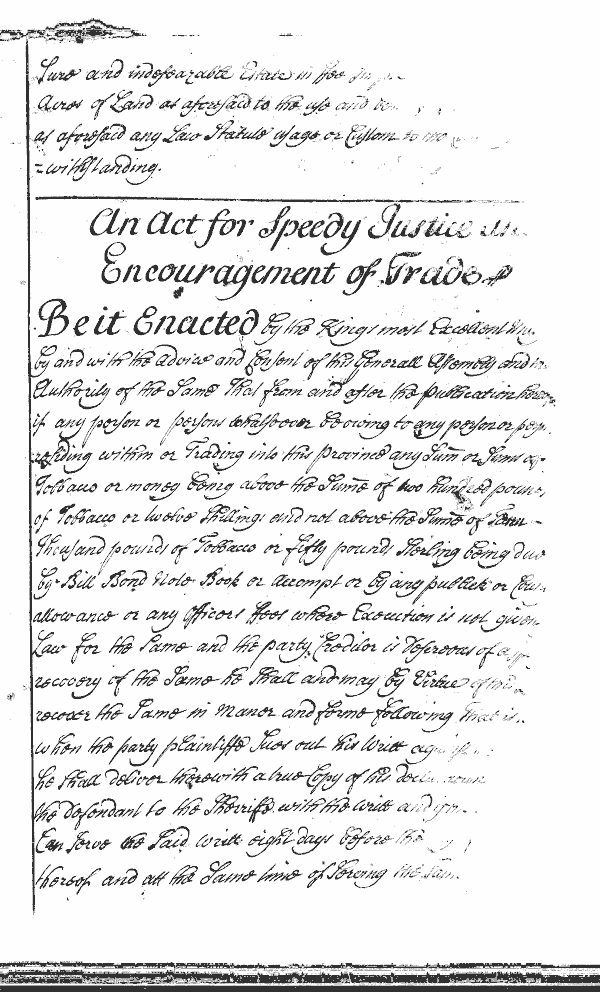 Sure and indefeazable Estate in ffee
Acres of Land as aforesaid to the use and
as aforesaid any Law Statute usage or Custom to
=withstanding.
An Act for Speedy Justice
Encouragement of Trade
Be it Enacted by the Kings most Excellent
by and with the advice and Consent of this Generall Assembly and
Authority of the Same That from and after the publication
if any person or persons whatsoever be owing to any person or
residing within or Trading into this Province any Sum or Sums
Tobbacco or money being above the Sume of two hundred
of Tobbacco or twelve Shillings and not above the Sume of Tenn
Thousand pounds of Tobbacco or fifty pounds Sterling being due
by Bill Bond Note Book or accompt or by any publick or
allowance or any Officers ffees where Execution is not given
Law for the Same and the party Creditor is Desireous of a
recovery of the Same he Shall and may by Virtue
recover the Same in Maner and forme following That is
when the party plaintiffe Sues out his Writt
he Shall deliver therewith a true Copy of his
the defendant to the Sherriffe with the writt and
Can Serve the Said writt eight days before the
thereof and att the Same time of Serving the